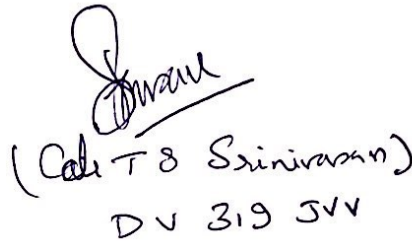 (Col T S Srinivasan)
DV 319 JVV